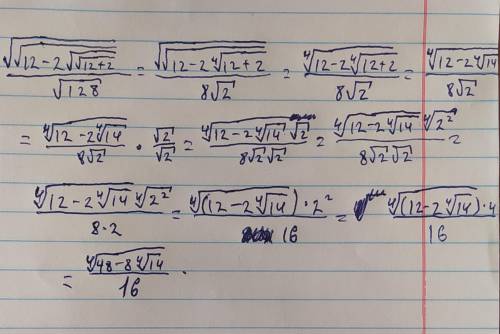 √(√(12-2√(√(12+2))))/√128 = √(√(12-2∜(12+2)))/8√2 = ∜(12-2∜(12+2))/8√2 = ∜(12-2∜14)/8√2
= ∜(12-2∜14)/8√2 · √2/√2 = ∜(12-2∜14) √2/8√2√2 = ∜(12-2∜14) ∜(2²)/8√2√2 =
∜(12-2∜14) ∜(2²)/8·2 = ∜((12-2∜14)·2²)/16 = ∜((12-2∜14)·4)/16
= ∜(48-8∜14)/16 .